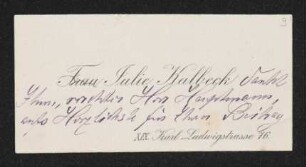 Frau Julie Kalbeck dankt
Ihnen, verehrter Herr Hauptmann,
aufs Herzlichste für Ihren Beitrag
XIX. Karl Ludwigstrasse 46